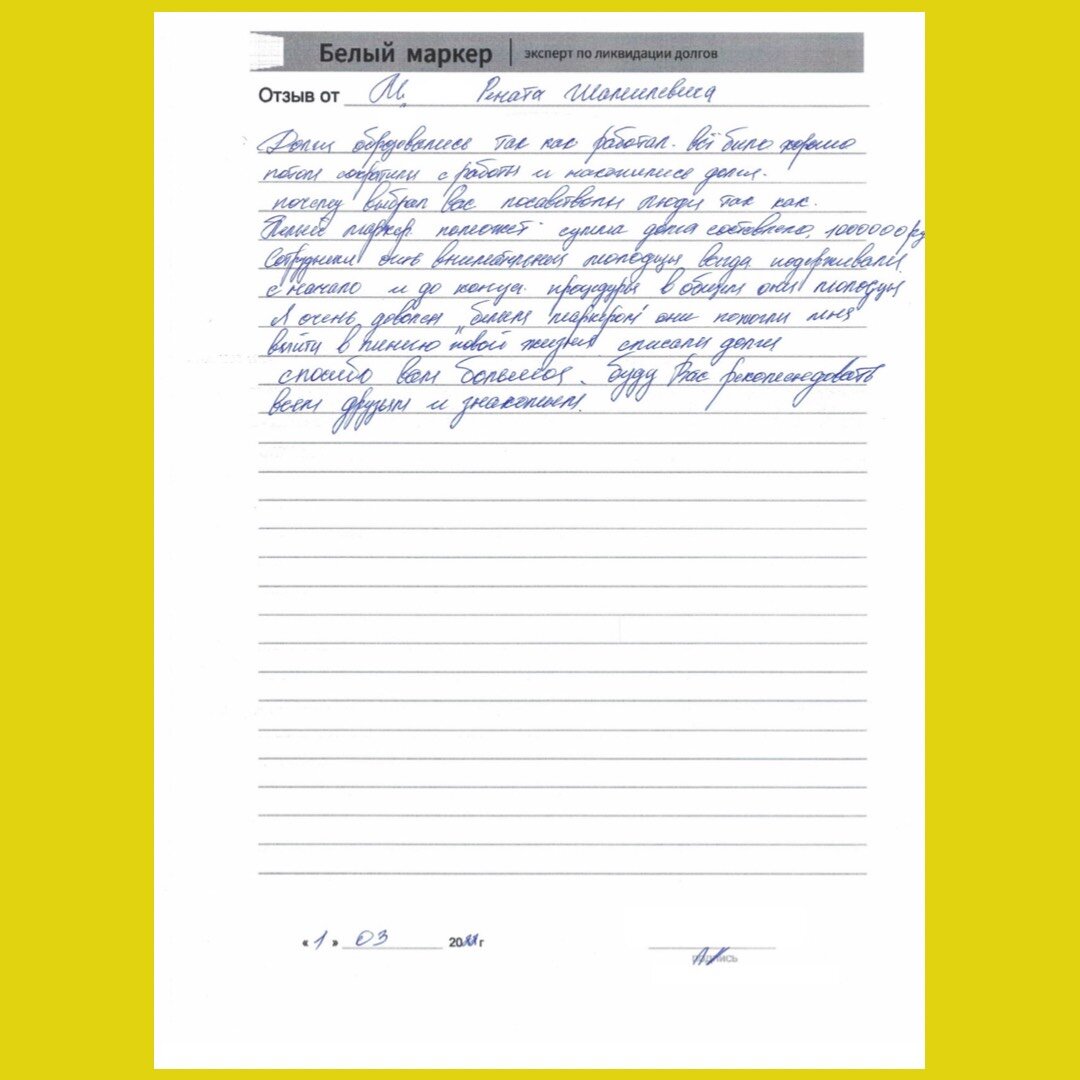 Белый маркер | эксперт по ликвидации долгов
Отзыв от М. Рената Шамилевича
Долги образовались так как работал. всё было хорошо
потом сократили с работы и накопились долги.
почему выбрал Вас посоветовали люди так как.
Белый маркер поможет сумма долга составляло, 1000000 ру
Сотрудники очень внимательный молодцы всегда подерживали
с начало и до конца. процедуры в общем они молодцы
Я очень доволен "белым маркером" они помогли мне
выйти в линию новой жизни списали долги
спосибо вам большое. буду Вас рекомендовать
всем друзьям и знакомым.
«1» 03 20 г
подпись